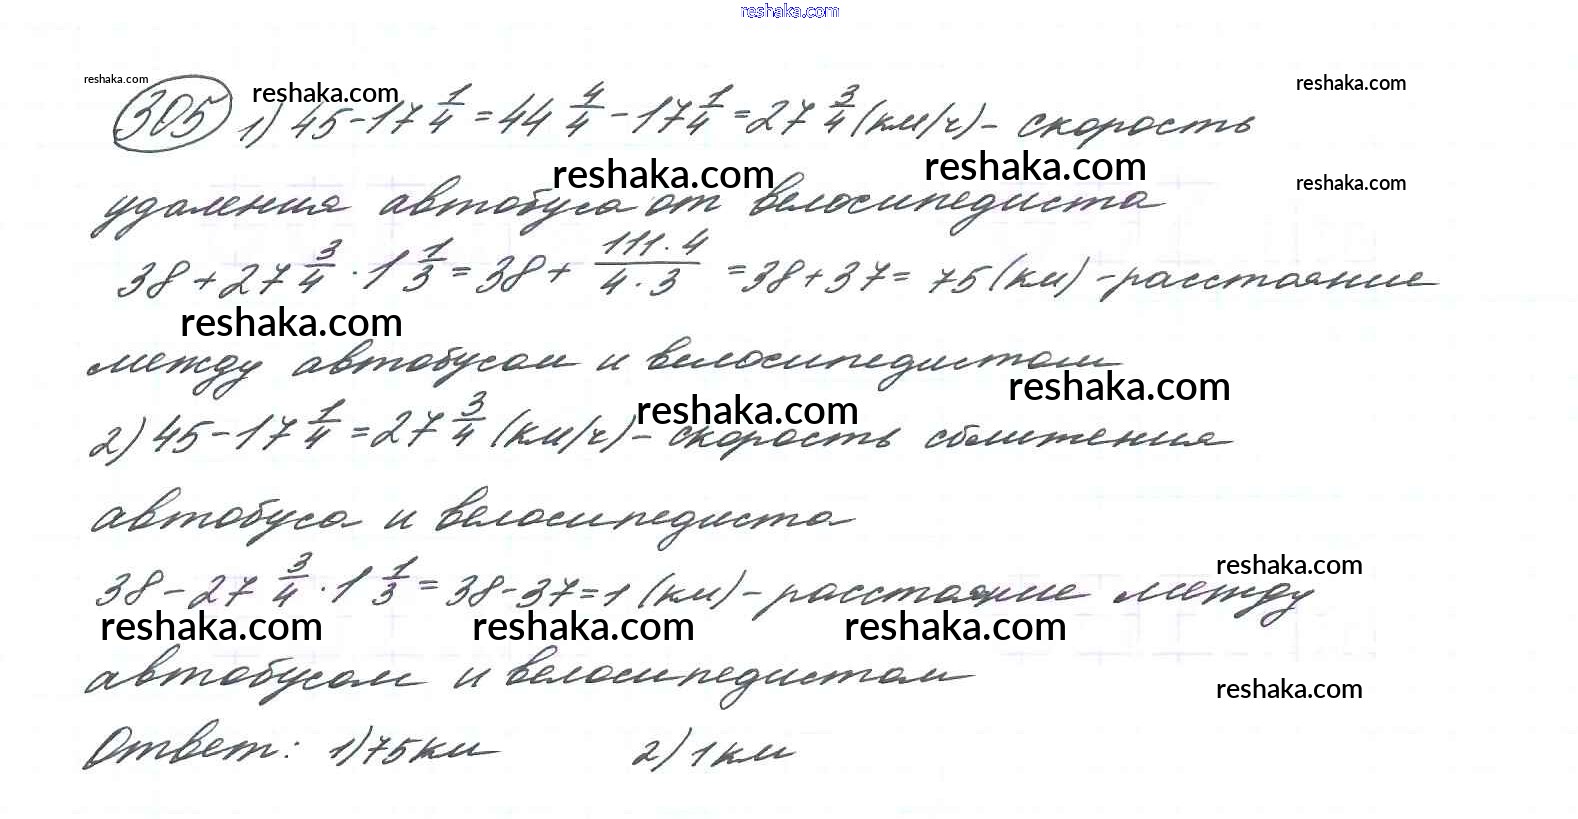 reshaka.com
reshaka.com reshaka.com reshaka.com
305 1) 45 - 17 1/4 = 44 4/4 - 17 1/4 = 27 3/4 (км/ч) - скорость
reshaka.com reshaka.com reshaka.com
удаления автобуса от велосипедиста
38 + 27 3/4 · 1 1/3 = 38 + 111·4/4·3 = 38 + 37 = 75 (км) - расстояние
reshaka.com
между автобусом и велосипедистом
reshaka.com reshaka.com
2) 45 - 17 1/4 = 27 3/4 (км/ч) - скорость сближения
автобуса и велосипедиста
reshaka.com
38 - 27 3/4 · 1 1/3 = 38 - 37 = 1 (км) - расстояние между
reshaka.com reshaka.com reshaka.com
автобусом и велосипедистом
reshaka.com
Ответ: 1) 75 км 2) 1 км